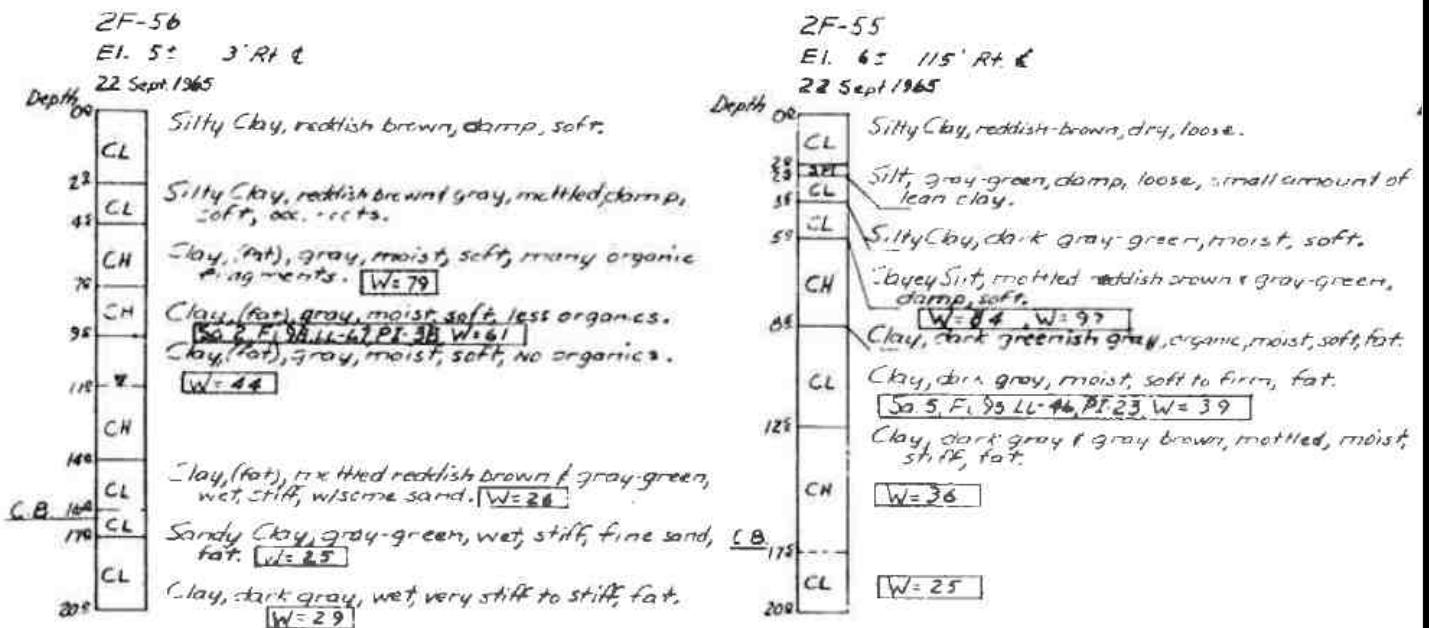 2F-56
El. 5± 3' Rt ℄
22 Sept. 1965
Depth
0.0
CL Silty Clay, reddish brown, damp, soft.
CL Silty Clay, reddish brown & gray, mottled, damp,
soft, occ.
CH Clay, (fat), gray, moist, soft, many organic
fragments. W=79
CH Clay, (fat), gray, moist, soft, less organics.
Sa 2, Fi 98, LL- PI-38 W=61
Clay, (fat), gray, moist, soft, No organics.
W=44
CH
CL Clay, (fat), mottled reddish brown & gray-green,
wet, stiff, w/some sand. W=26
C.B.
CL Sandy Clay, gray-green, wet, stiff, fine sand,
fat. W=25
CL Clay, dark gray, wet, very stiff to stiff, fat.
W=29
2F-55
El. 6± 115' Rt. ℄
22 Sept 1965
Depth
CL Silty Clay, reddish-brown, dry, loose.
Silt, gray-green, damp, loose, small amount of
lean clay.
CL Silty Clay, dark gray-green, moist, soft.
CL Clayey Silt, mottled reddish brown & gray-green,
damp, soft.
W=97
CH Clay, dark greenish gray, organic, moist, soft, fat.
CL Clay, dark gray, moist, soft to firm, fat.
Sa 5, Fi 95 LL-46, PI-23 W=39
Clay, dark gray & gray brown, mottled, moist,
stiff, fat.
CH W=36
C.B.
CL W=25